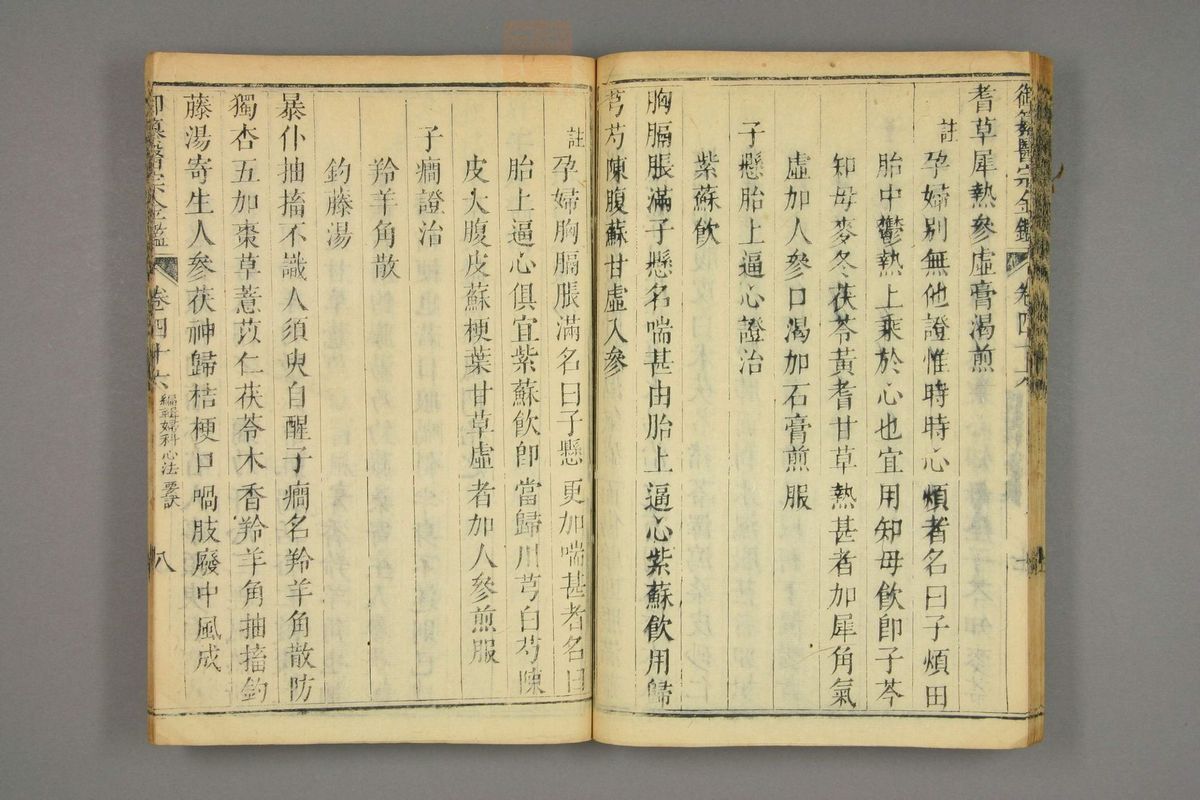 御纂醫宗金鑑 卷四十六
耆草犀熱參虛膏渴煎
註 孕婦别無他證惟時時心煩者名曰子煩由
胎中鬱熱上乘於心也宜用知母飮卽子芩
知母麥冬茯苓黃耆甘草熱甚者加犀角氣
虛加人參口渴加石膏煎服
子懸胎上逼心證治
紫蘇飮
胸膈脹滿子懸名喘甚由胎上逼心紫蘇飮用歸
芎芍陳腹蘇甘虛入參
註 孕婦胸膈脹滿名曰子懸更加喘甚者名曰
胎上逼心俱宜紫蘇飮卽當歸川芎白芍陳
皮大腹皮蘇梗葉甘草虛者加人參煎服
子癎證治
羚羊角散
鈎藤湯
暴仆抽搐不識人須臾自醒子癎名羚羊角散防
獨杏五加棗草薏苡仁茯苓木香羚羊角抽搐鈎
藤湯寄生人參茯神歸桔梗口喎肢廢中風成
御纂醫宗金鑑 卷四十六 編輯婦科心法要訣 八